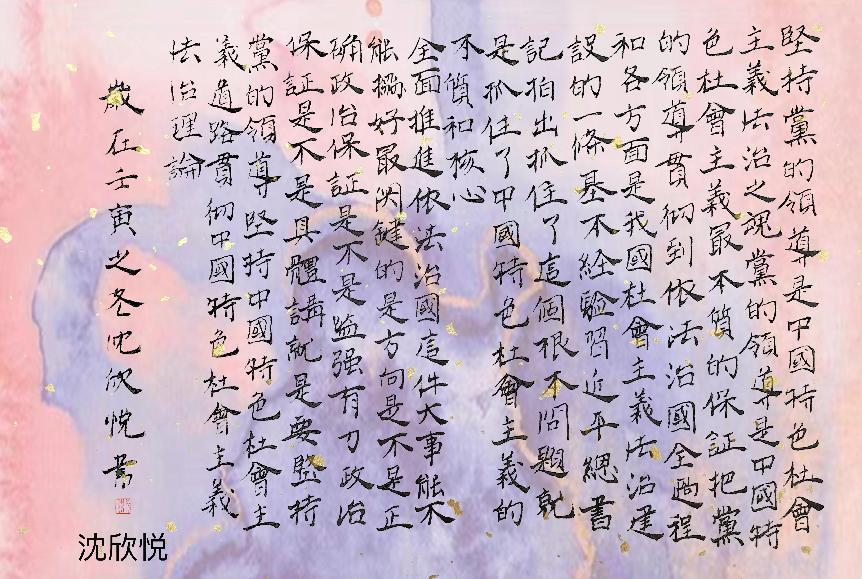 堅持黨的領導是中國特色社會
主義法治之魂黨的領導是中國特
色社會主義最本質的保証把黨
的領導貫彻到依法治國全過程
和各方面是我國社會主義法治建
設的一條基本經驗習近平總書
記指出抓住了這個根本問題就
是抓住了中國特色社會主義的
本質和核心
全面推進依法治國這件大事能不
能搞好最関鍵的是方向是不是正
确政治保証是不是堅强有力政治
保証是不是具體講就是要堅持
黨的領導堅持中國特色社會主
義道路貫彻中國特色社會主義
法治理論
歲在壬寅之冬沈欣悅書
沈欣悦